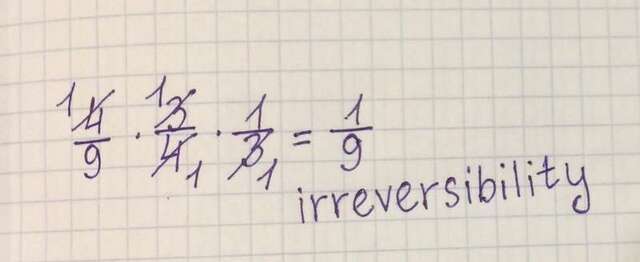 4/9 · 3/4 · 1/3 = 1/9
irreversibility